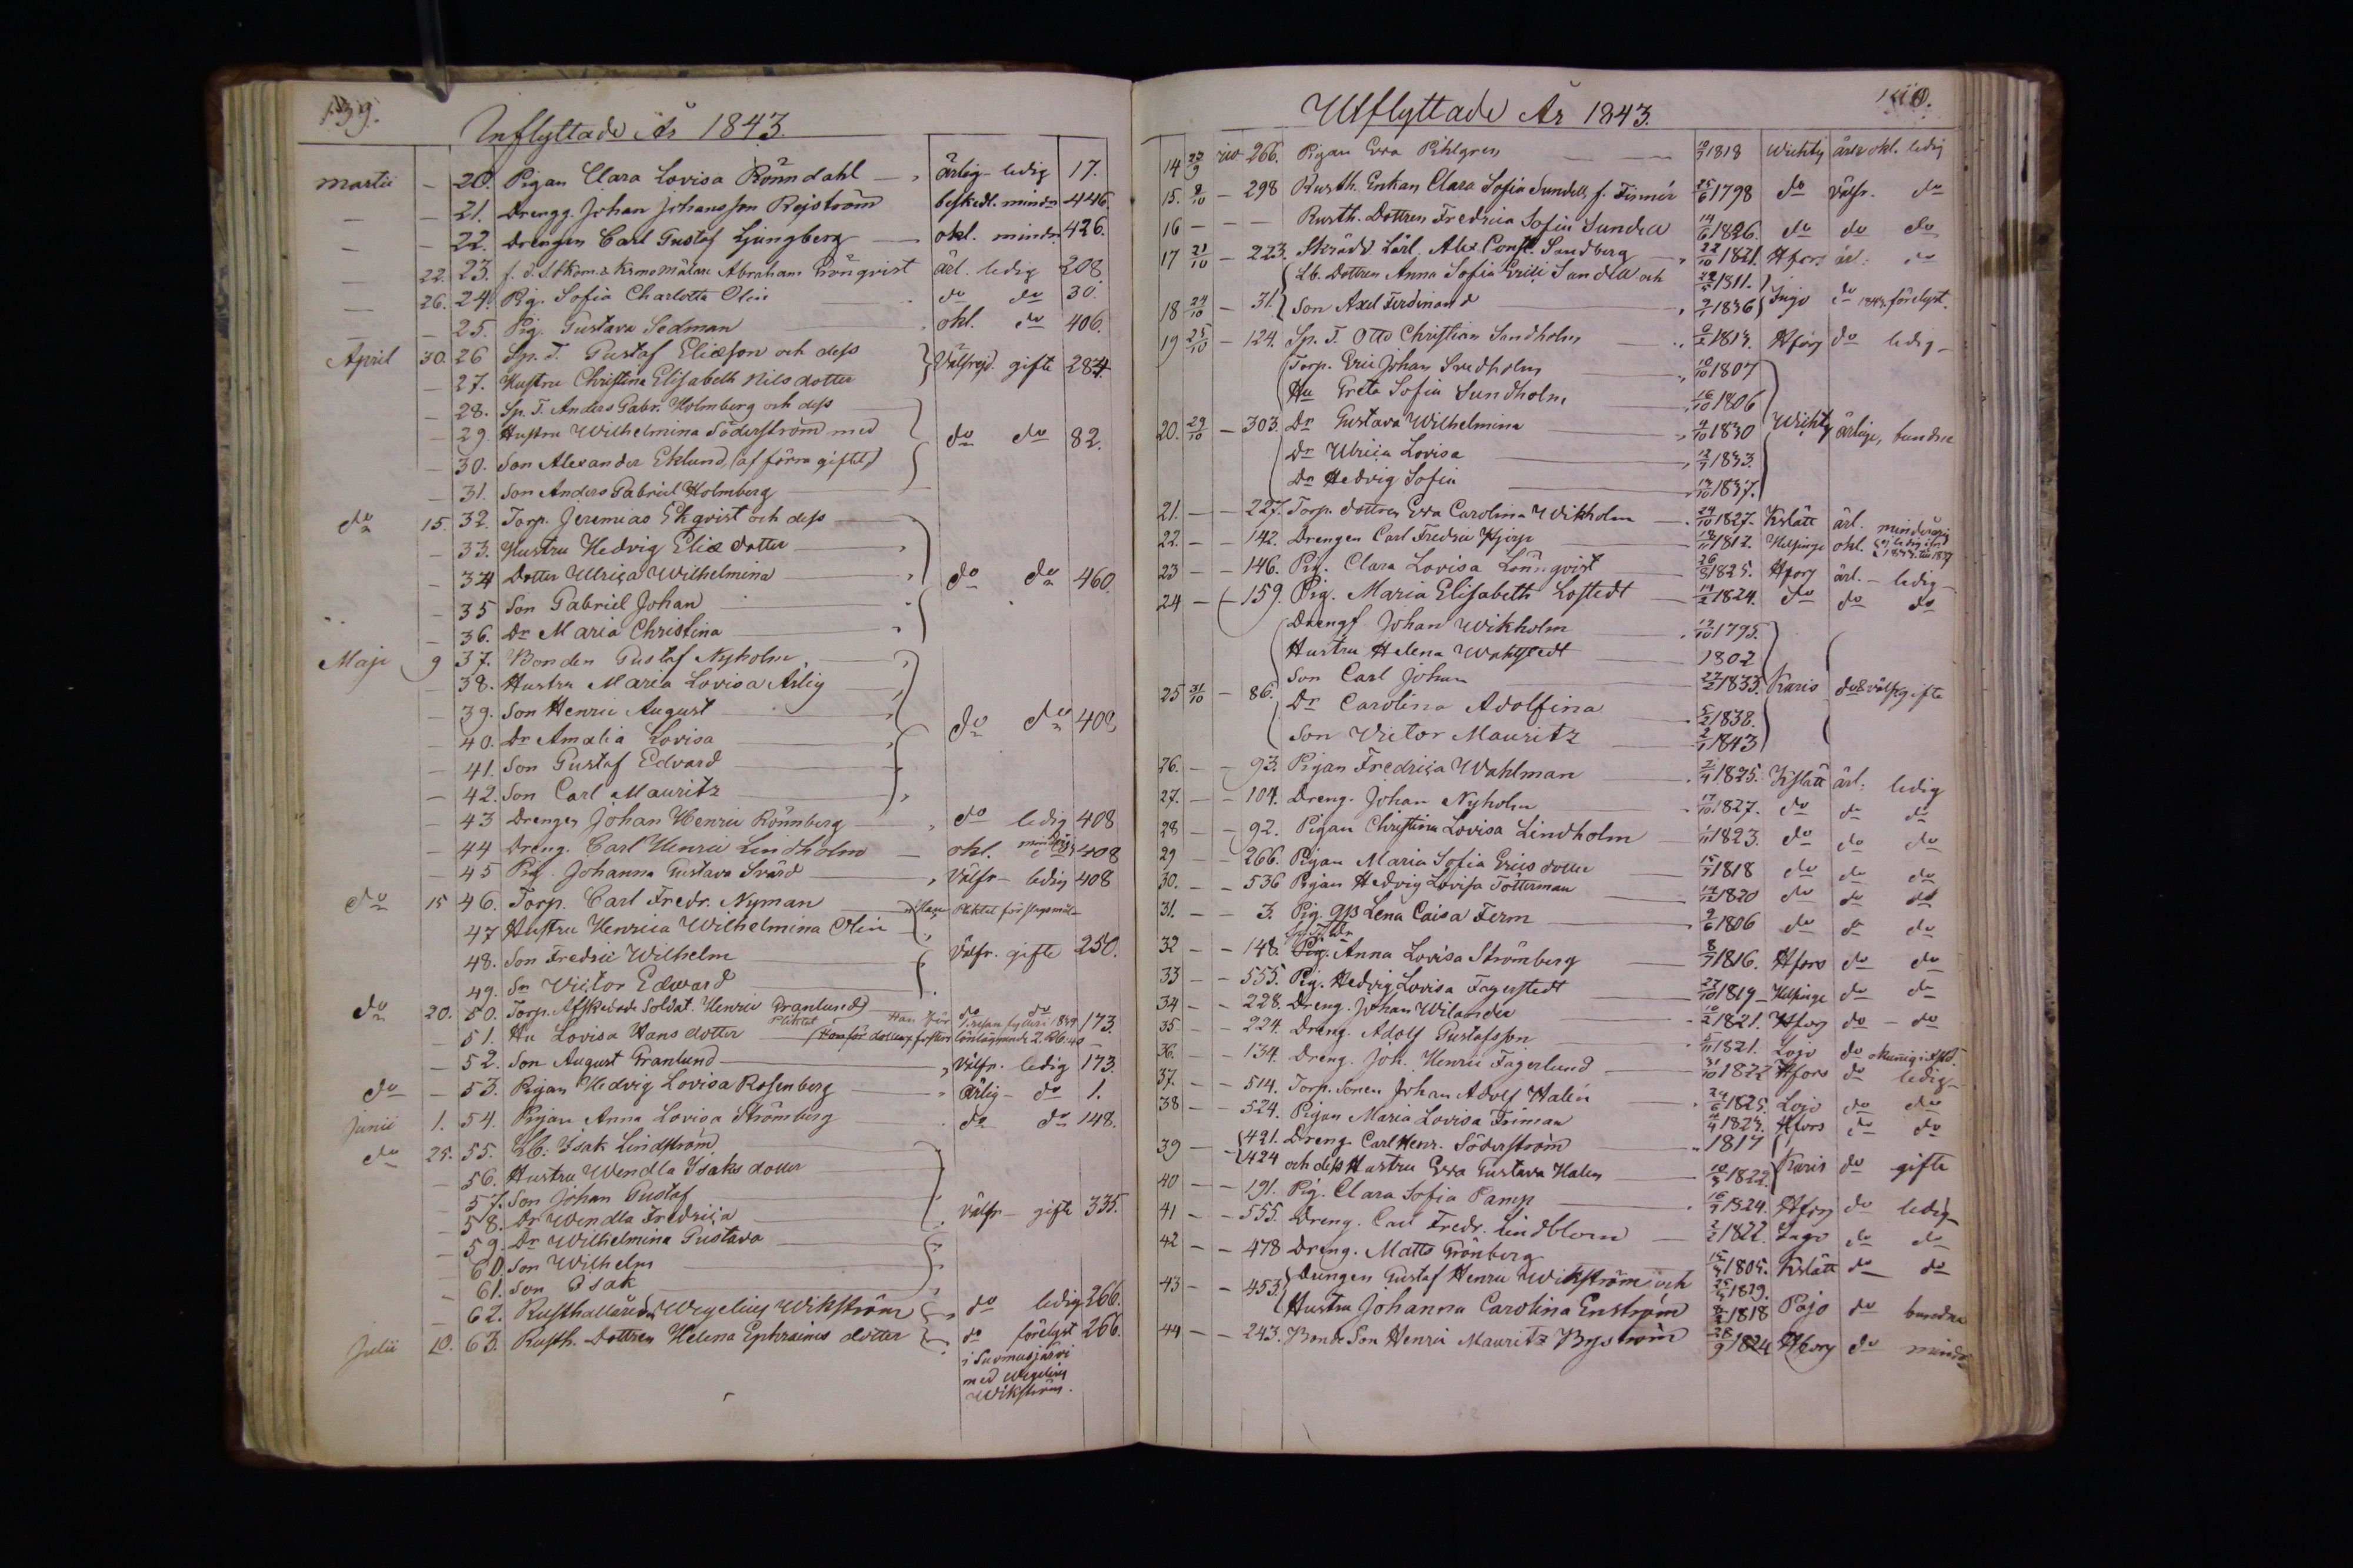 139.
Inflyttade År 1843.
Martii — 20. Pigan Clara Lovisa Rönndahl — ärlig ledig 17.
— — 21. Drengg. Johan Johansson Röjström beskedl. mindr 446.
— — 22. Drengen Carl Gustaf Ljungberg — okl. mindr. 426.
— 22. 23. Abraham Grönqvist ärl. ledig 208
— 26. 24. Pig. Sofia Charlotta Olin do do 30.
— 25. Pig. Gustava Sedman okl. do 406.
April 30. 26 Sp. T. Gustaf Eliæson och dess
— 27. Hustru Christina Elisabeth Nilsdotter Välfrejd. gifte 284.
— 28. Sp. T. Anders Gabr. Holmberg och dess
— 29. Hustru Wilhelmina Söderström med do do 82.
— 30. Son Alexander Eklund, (af förra giftet)
— 31. Son Anders Gabriel Holmberg
do 15. 32. Torp. Jeremias Ekqvist och dess
— 33. Hustru Hedvig Eliæ dotter
— 34 Dotter Ulrica Wilhelmina do do 460.
— 35 Son Gabriel Johan
— 36. Dr Maria Christina
Maji 9 37. Bonden Gustaf Nyholm
— 38. Hustru Maria Lovisa Arlig
— 39. Son Henric August
— 40. Dr Amalia Lovisa do do 408
— 41. Son Gustaf Edvard
— 42. Son Carl Mauritz
— 43 Drengen Johan Henric Rönnberg do ledig 408
— 44 Dreng. Carl Henric Lindholm — okl. 408
— 45 Pig. Johanna Gustava Svärd Välfr. ledig 408
do 15 46. Torp. Carl Fredr. Nyman Han Pliktat
47 Hustru Henrica Wilhelmina Olin
48. Son Fredric Wilhelm Välfr. gifte 250.
49. Sn Victor Edward
do 20. 50. Torp. Afskedade Soldat. Henric Granlund do do 173.
— 51. Hu Lovisa Hans dotter
— 52. Son August Granlund Välfr. ledig 173.
do — 53. Pigan Hedvig Lovisa Rosenberg Ärlig do 1.
Junii 1. 54. Pigan Anna Lovisa Strömberg do do 148.
do 25. 55. Lb. Isak Lindström
— 56. Hustru Wendla Isaks dotter
— 57. Son Johan Gustaf
— 58. Dr Wendla Fredrica Välfr. gifte 335.
— 59. Dr Wilhelmina Gustava
— 60. Son Wilhelm
— 61. Son Isak
— 62. Rusthållaren Wegelius Wikström do ledig 266.
Julii 10. 63. Rusth. Dottren Helena Ephraims dotter do förelyst 266.
i Suomusjärvi
med Wegelius
Wikström.
Utflyttade År 1843.
14 22/9 266. Pigan Eva Pihlgren 1818 Wichtis ärl. okl. ledig
15. 8/10 — 298 Rusth. Enkan Clara Sofia Sundell f. 25/6 1798 do välfr. do
16 — — — Rusth. Dottren Fredrica Sofia Sundell 14/6 1826. do do do
17 21/10 — 223. Lärl. Alex. Const. Sandberg 22/10 1821. Hfors ärl. do
Lb. Dottren Anna Sofia Sandell och 1811.
18 24/10 — 31. Son Axel Ferdinand 1836 Ingo do förelyst.
19 25/10 — 124. Sp. T. Otto Christian Sandholm 1813. Hfors do ledig
Torp. Eric Johan Svedholm 10/10 1807
Hu Greta Sofia Sundholm 16/10 1806
20. 29/10 — 303. Dr Gustava Wilhelmina 4/10 1830 Wichtis ärlige, bundna
Dr Ulrica Lovisa 1833.
Dr Hedvig Sofia 1837.
21. — — 227. Torp. dottren Eva Carolina Wikholm 24/10 1827. Kslätt ärl. minderårig
22. — — 142. Drengen Carl Fredric 1812. Helsinge okl.
23 — — 146. Pig. Clara Lovisa Lönnqvist 1825. Hfors ärl. ledig
24 — — 159. Pig. Maria Elisabeth Lofstedt 1824. do do do
Drengf. Johan Wikholm 1795.
Hustru Helena 1802
Son Carl Johan 1833. Karis
25 31/10 — 86. Dr Carolina Adolfina 1838. do välfrejd gifte
Son Victor Mauritz 1843
26. — — 93. Pigan Fredrica Wahlman 1825. Kslätt ärl. ledig
27. — — 104. Dreng. Johan Nyholm 17/10 1827. do do do
28 — — 92. Pigan Christina Lovisa Lindholm 1823. do do do
29 — — 266. Pigan Maria Sofia Erics dotter 1818 do do do
30. — — 536 Pigan Hedvig Lovisa Tötterman 1820 do do do
31. — — 3. Pig. Lena Caisa Ferm 1806 do do do
32 — — 148. Anna Lovisa Strömberg 1816. Hfors do do
33 — — 555. Pig. Hedvig Lovisa Fagerstedt 1819 Helsinge do do
34 — — 228. Dreng. Johan Wilander 1821. Hfors do do
35 — — 224. Dreng. Adolf Gustafsson 1821. Lojo do
36. — — 134. Dreng. Joh. Henric Fagerlund 31/10 1822 Hfors do ledig
37. — — 514. Torp. sonen Johan Adolf Halén 1825. Lojo do do
38 — — 524. Pigan Maria Lovisa Friman Hfors do do
39 — — 421. Dreng. Carl Henr. Söderström 1817
424 och dess Hustru Eva Gustava Halen 1822. Karis do gifte
40 — — 191. Pig. Clara Sofia Pamp 1824. Hfors do ledig
41 — — 555. Dreng. Carl Fredr. Lindblom 1822. Ingo do do
42 — — 478 Dreng. Matts Grönberg 1805. Kslätt do do
43 — — 453. Drengen Gustaf Henric Wikström och 1819.
Hustru Johanna Carolina Enström 1818 Pojo do bundna
44 — — 243. Bonde Son Henric Mauritz Byström 28/9 1824 Hfors do mindr